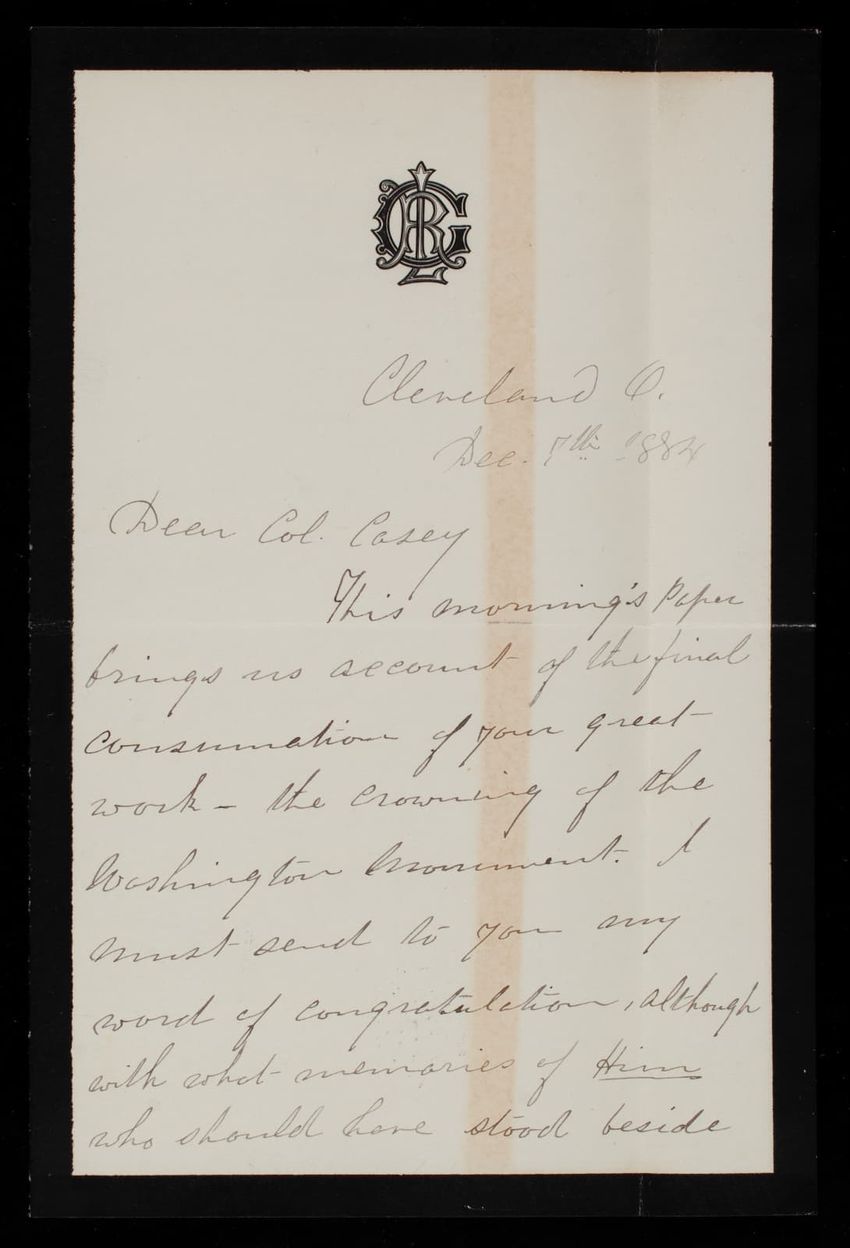 Cleveland O.
Dec. 7th 1884
Dear Col. Casey
This morning's Paper
brings us account of the final
consummation of your great
work – the crowning of the
Washington Monument. I
must send to you my
word of congratulation, although
with what memories of Him
who should have stood beside